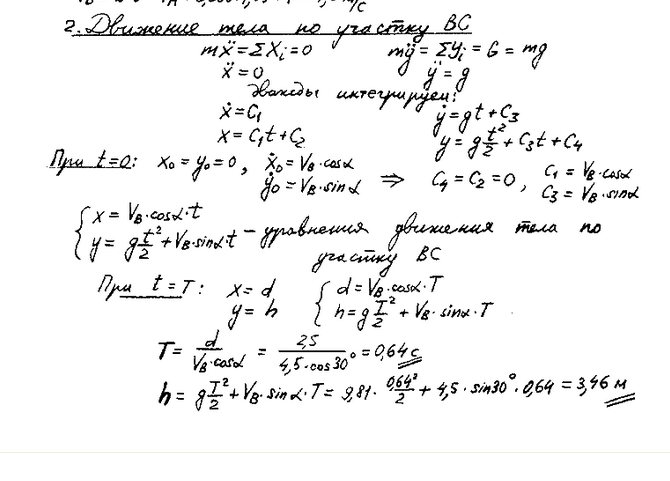 2. Движение тела по участку BC
mẍ = ΣXᵢ = 0 mÿ = ΣYᵢ = G = mg
ẍ = 0 ÿ = g
дважды интегрируем:
ẋ = C₁ ẏ = gt + C₃
x = C₁t + C₂ y = g t²/2 + C₃t + C₄
При t=0: x₀ = y₀ = 0, ẋ₀ = V_B·cosα
ẏ₀ = V_B·sinα ⇒ C₄ = C₂ = 0, C₁ = V_B·cosα
C₃ = V_B·sinα
{ x = V_B·cosα·t
y = g t²/2 + V_B·sinα·t – уравнения движения тела по
участку BC
При t = T: x = d { d = V_B·cosα·T
y = h h = g T²/2 + V_B·sinα·T
T = d/(V_B·cosα) = 2,5/(4,5·cos30°) = 0,64 с
h = g T²/2 + V_B·sinα·T = 9,81·0,64²/2 + 4,5·sin30°·0,64 = 3,46 м